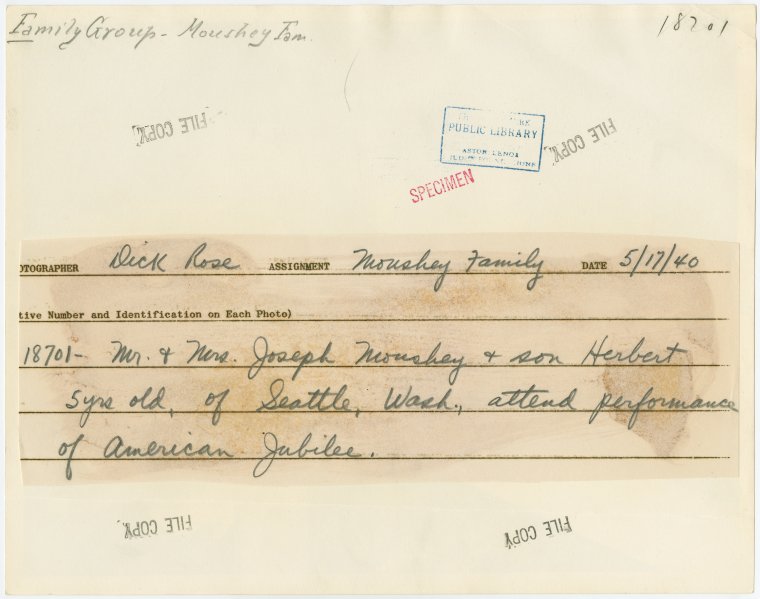 Family Group - Moushey Fam.
18701
FILE COPY
PUBLIC LIBRARY
ASTOR LENOX
FILE COPY
SPECIMEN
OTOGRAPHER Dick Rose ASSIGNMENT Moushey Family DATE 5/17/40
tive Number and Identification on Each Photo)
18701- Mr. & Mrs. Joseph Moushey & son Herbert
5yrs old, of Seattle, Wash., attend performance
of American Jubilee.
FILE COPY
FILE COPY